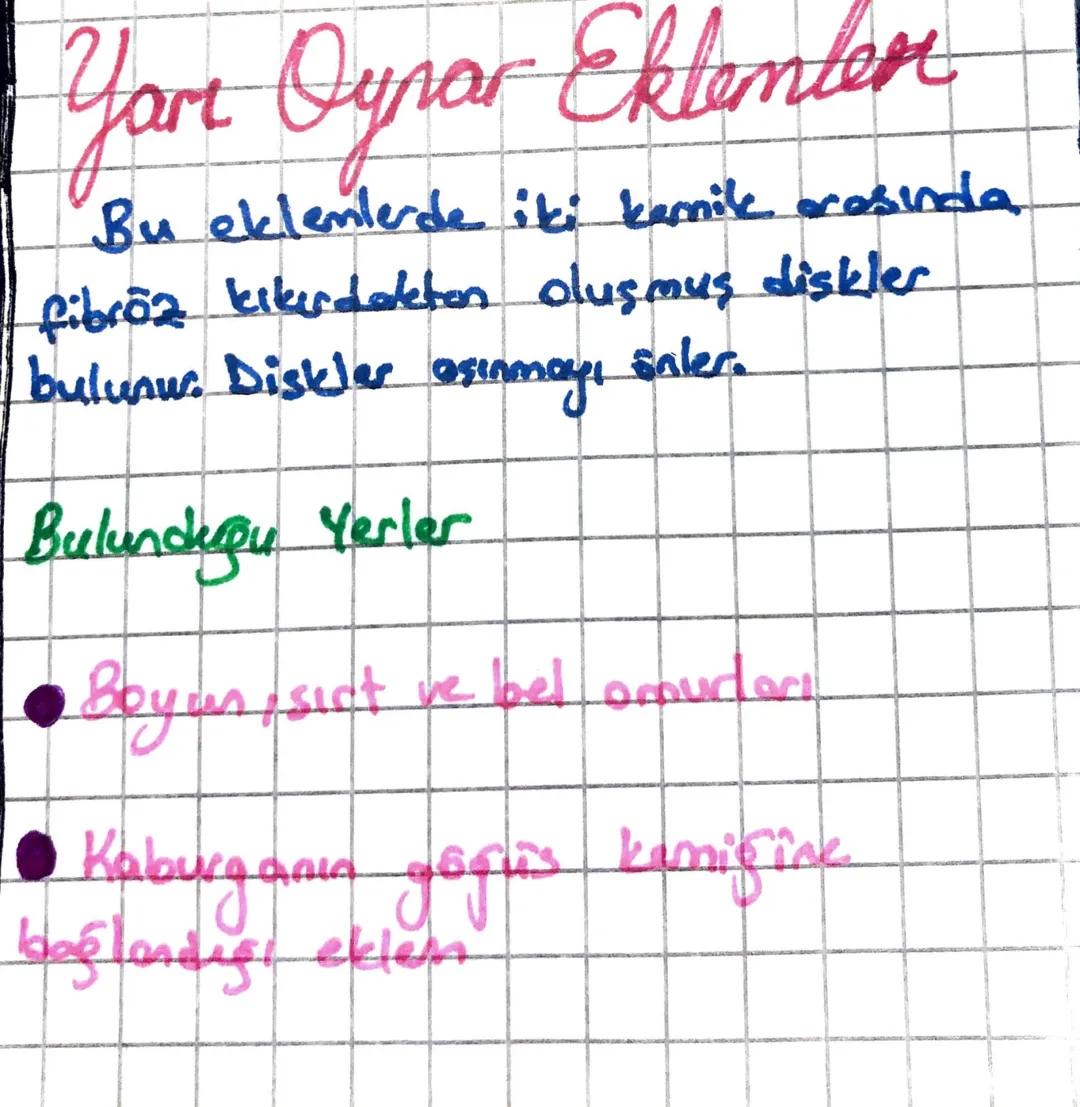 Yarı Oynar Eklemler
Bu eklemlerde iki kemik arasında
fibröz kıkırdaktan oluşmuş diskler
bulunur. Diskler aşınmayı önler.
Bulunduğu Yerler
Boyun, sırt ve bel omurları
Kaburganın göğüs kemiğine
bağlandığı eklem